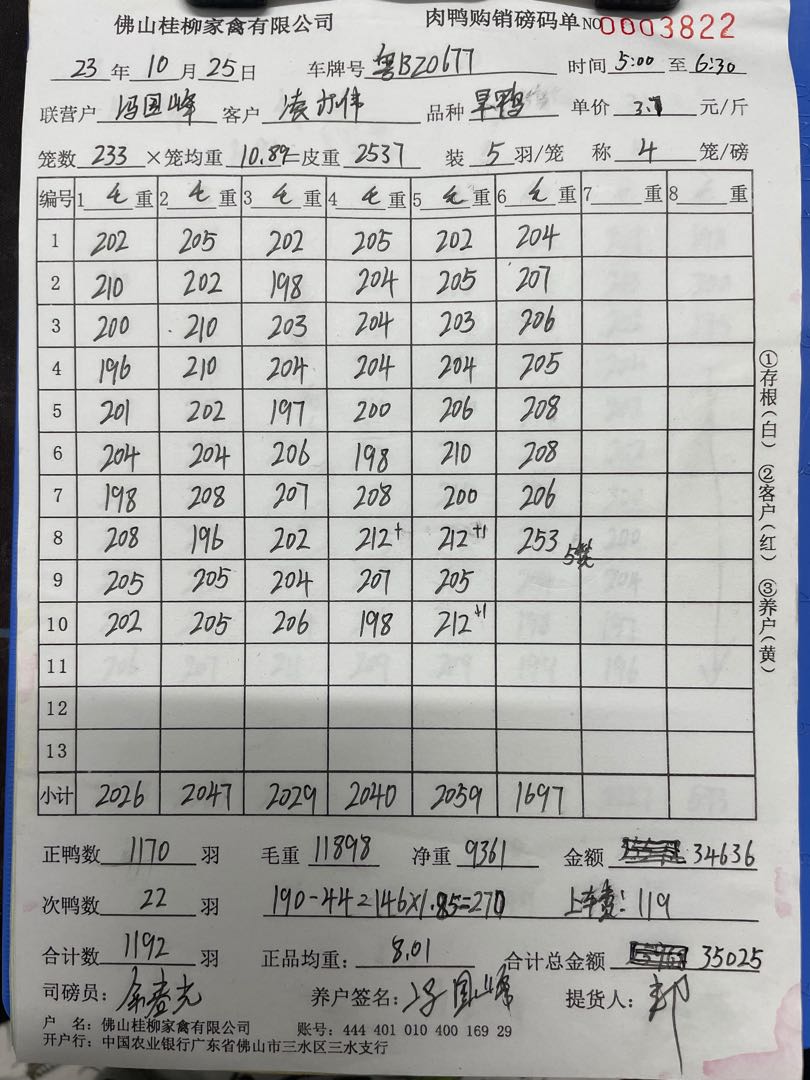 佛山桂柳家禽有限公司 肉鸭购销磅码单 NO 0003822
23 年 10 月 25 日 车牌号 粤BZ0677 时间 5:00 至 6:30
联营户 冯国峰 客户 品种 旱鸭 单价 3.7 元/斤
笼数 233 ×笼均重 10.89 =皮重 2537 装 5 羽/笼 称 4 笼/磅
编号 1 毛 重 2 毛 重 3 毛 重 4 毛 重 5 毛 重 6 毛 重 7 重 8 重
1 202 205 202 205 202 204
2 210 202 198 204 205 207
3 200 210 203 204 203 206
4 196 210 204 204 204 205
5 201 202 197 200 206 208
6 204 204 206 198 210 208
7 198 208 207 208 200 206
8 208 196 202 212+ 212+1 253 5笼
9 205 205 204 207 205
10 202 205 206 198 212+1
11
12
13
小计 2026 2047 2029 2040 2059 1697
正鸭数 1170 羽 毛重 11898 净重 9361 金额 34636
次鸭数 22 羽 190-44=146×1.85=270 上车费:119
合计数 1192 羽 正品均重: 8.01 合计总金额 35025
司磅员: 养户签名: 冯国峰 提货人:
户 名: 佛山桂柳家禽有限公司 账号: 444 401 010 400 169 29
开户行: 中国农业银行广东省佛山市三水区三水支行
①存根(白) ②客户(红) ③养户(黄)